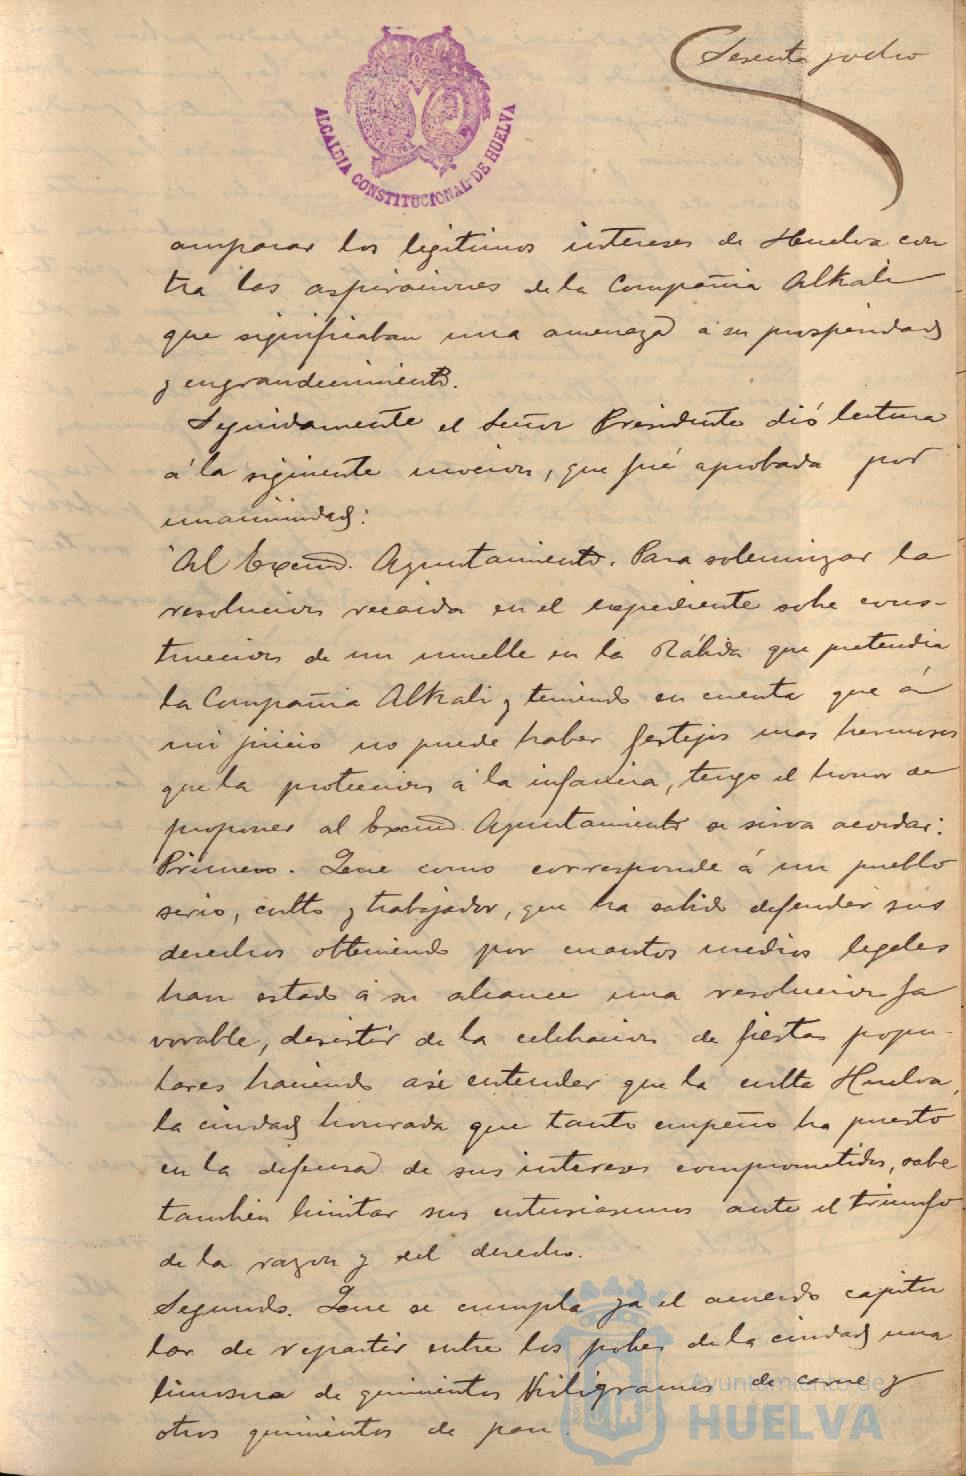 Sesenta y ocho
ALCALDIA CONSTITUCIONAL DE HUELVA
amparar los legitimos intereses de Huelva con
tra las aspiraciones de la Compañia Alkali
que significaban una amenaza á su prosperidad
y engrandecimiento.
Seguidamente el Señor Presidente dió lectura
á la siguiente mocion, que fué aprobada por
unanimidad:
"Al Excmo. Ayuntamiento. Para solemnizar la
resolucion recaida en el expediente sobre cons-
truccion de un muelle en la Rábida que pretendia
la Compañia Alkali y teniendo en cuenta que á
mi juicio no puede haber festejos mas hermosos
que la proteccion á la infancia, tengo el honor de
proponer al Excmo. Ayuntamiento se sirva acordar:
Primero. Que como corresponde á un pueblo
serio, culto y trabajador, que ha sabido defender sus
derechos obteniendo por cuantos medios legales
han estado á su alcance una resolucion fa
vorable, desistir de la celebracion de fiestas popu-
lares haciendo asi entender que la culta Huelva,
la ciudad honrada que tanto empeño ha puesto
en la defensa de sus intereses comprometidos, sabe
tambien limitar sus entusiasmos ante el triunfo
de la razon y del derecho.
Segundo. Que se cumpla ya el acuerdo capitu
lar de repartir entre los pobres de la ciudad una
limosna de quinientos Kilógramos de carne y
otros quinientos de pan.
Ayuntamiento de
HUELVA